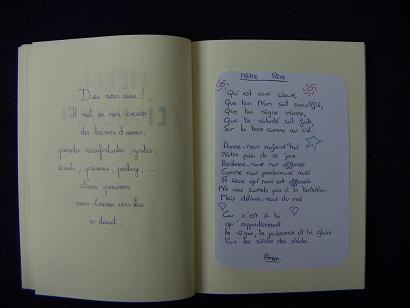 Dieu nous aime !
Il met en nos cœurs
des trésors d'amour :
paroles réconfortantes, gestes,
écoute, présence, partage, ...
Nous pouvons
nous tourner vers Lui
en disant :
MERCI
Notre Père
Qui es aux cieux,
Que ton Nom soit sanctifié,
Que ton règne vienne,
Que ta volonté soit faite,
Sur la terre comme au ciel.
Donne-nous aujourd'hui
Notre pain de ce jour
Pardonne-nous nos offenses
Comme nous pardonnons aussi
A ceux qui nous ont offensés
Ne nous soumets pas à la tentation
Mais délivre-nous du mal.
Car c'est à toi
qu'appartiennent
le règne, la puissance et la gloire
Pour les siècles des siècles.
Amen.